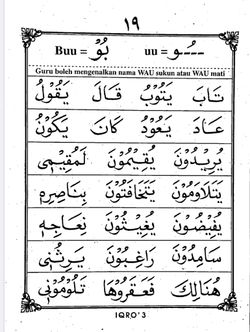 ١٩
Buu = بُوْ  uu = ـُـو
Guru boleh mengenalkan nama WAU sukun atau WAU mati
تَابَ يَتُوْبُ قَالَ يَقُوْلُ
عَادَ يَعُوْدُ كَانَ يَكُوْنُ
يُرِيْدُوْنَ يُقِيْمُوْنَ لَمُقِيْمٍ
يَتَلَاوَمُوْنَ يَتَخَافَتُوْنَ بِنَاصِرِهٖ
يُفِيْضُوْنَ يُغِيْثُوْنَ نِعَاجِهٖ
سَامِدُوْنَ رَاغِبُوْنَ يَرِثُنِيْ
هُنَالِكَ فَعَقَرُوْهَا تَلُوْمُوْنِيْ
IQRO'3